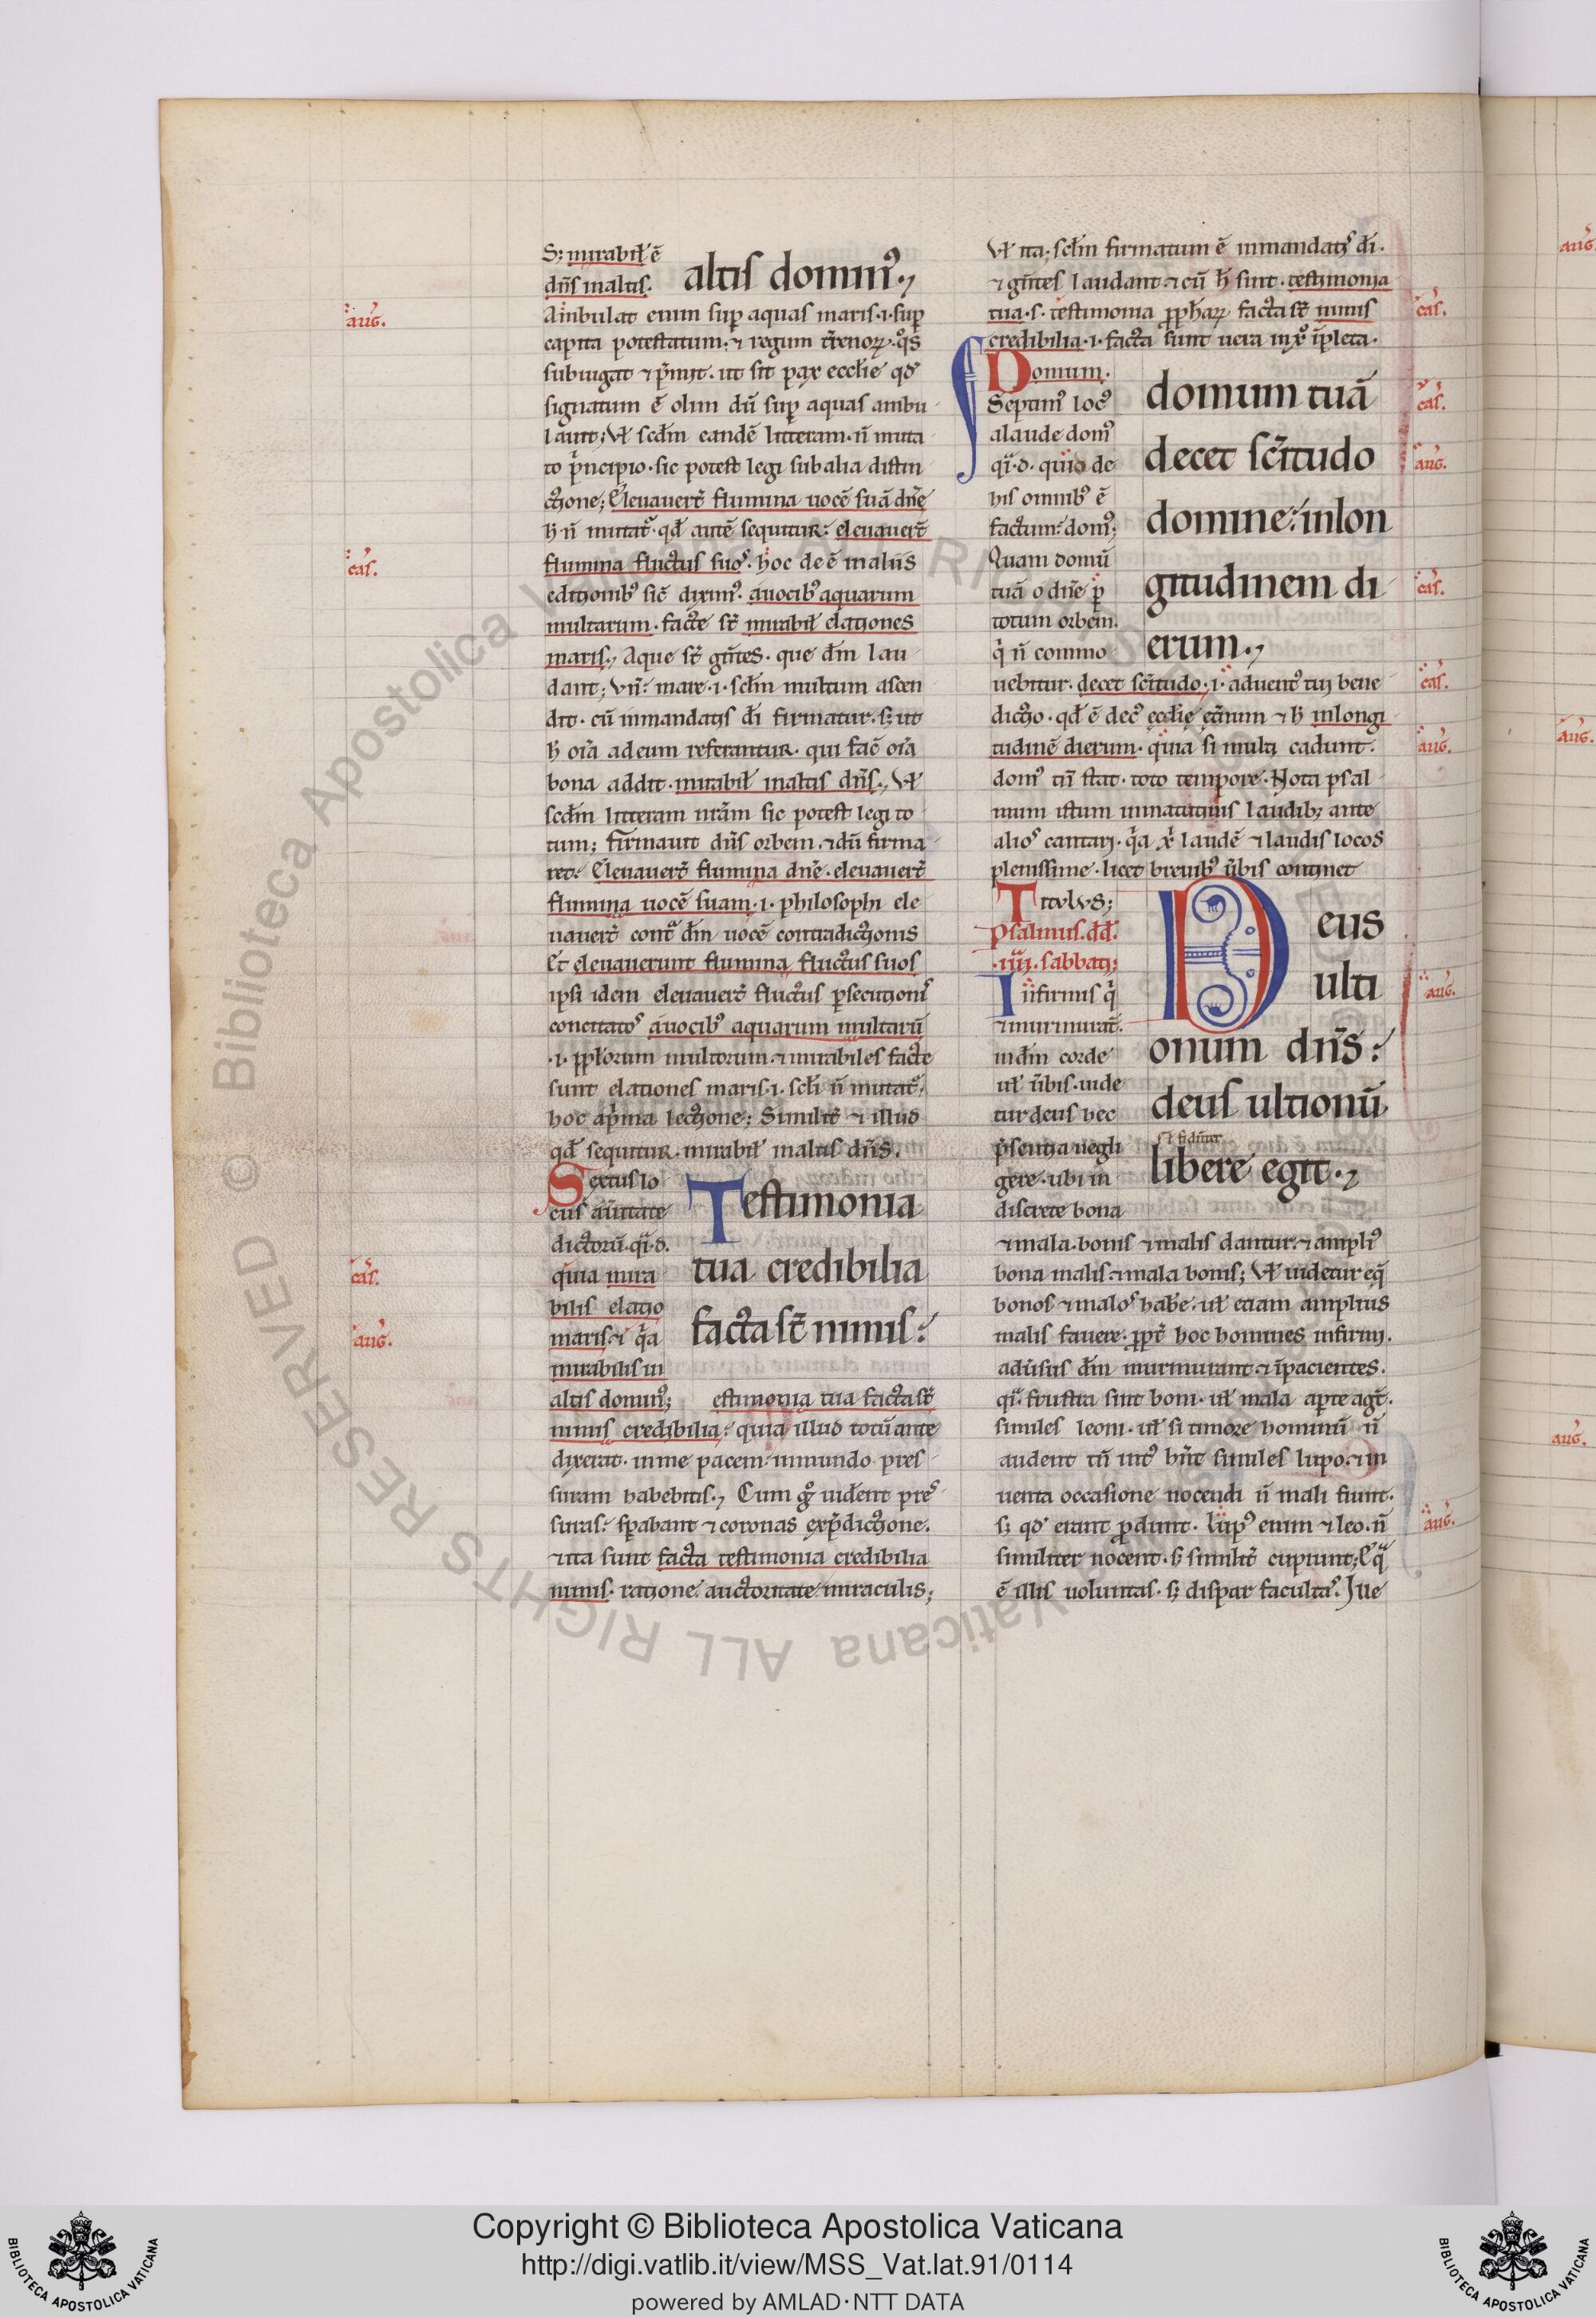 S; mirabił ē
dn̄s in altis.
altis dominꝰ.,
aug̃.
Ambulat enim sup̱ aquas maris·i·sup̱
capita potestatum·⁊ regum t̄renoꝝ·q̊s
subiugat ⁊ p̄mit. ut sit pax ecclie qd̕
signatum ē olim dū sup̱ aquas ambu
lauit; Vł scd̄m eandē litteram·n̄ muta
to p̄ncipio·sic potest legi sub alia distin
ctione; Eleuauer̄t flumina uocē suā dn̄e
h̄ n̄ mutat᷑·qd̄ autē sequitur: eleuauer̄t
cas̃.
flumina fluctus suos. hoc deē in aliis
editionibꝰ sic̄ diximꝰ. a uocibꝰ aquarum
multarum·facte st̄ mirabił elationes
maris., Aque st̄ gn̄tes·que dm̄ lau
dant; Vn̄: mare·i·scl̄m multum ascen
dit·cū in mandatis di firmatur·s; ut
h̄ oīa ad eum referantur·qui fac̄ oīa
bona addit·mirabił in altis dn̄s., Vł
scd̄m litteram nr̄am sic potest legi to
tum; firmauit dn̄s orbem·⁊ dū firma
ret: Eleuauer̄t flumina dn̄e·eleuauer̄t
flumina uocē suam·i·philosophi ele
uauer̄t cont᷑ dm̄ uocē contradictionis
Et eleuauerunt flumina fluctus suos
ipsi idem eleuauer̄t fluctus p̱secutionis
concitatos a uocibꝰ aquarum multarū
·i·pplorum multorum·⁊ mirabiles facte
sunt elationes maris·i·scl̄i n̄ mutat᷑,
hoc a p̄ma lectione; Similit̄ ⁊ illud
qd̄ sequitur·mirabił in altis dn̄s.
Sextus lo
cus a ūitate
dictorū·q̄i·d.
cas̃.
quia mira
bilis elatio
aug̃.
maris·i q̄a
mirabilis in
altis dominꝰ;
Testimonia
tua credibilia
facta st̄ nimis:
estimonia tua facta st̄
nimis credibilia: quia illud totū ante
dixerat·in me pacem: in mundo pres
suram habebitis., Cum g̊ uiderit pres
suras: sp̱abant ⁊ coronas ex p̄dictione.
⁊ ita sunt facta testimonia credibilia
nimis·ratione auctoritate miraculis;
Vł ita; scl̄m firmatum ē in mandatis di.
⁊ gn̄tes laudant·⁊ cū h̄ sint·testimonia
tua·s·testimonia ꝓphaꝝ facta st̄ nimis
cas̃.
credibilia·i·facta sunt uera in xp̊ īpleta.
Domum.
Septimꝰ locꝰ
cas̃.
a laude domꝰ
q̄i·d·quid de
aug̃.
his omnibꝰ ē
factum: domꝰ;
Quam domū
tuā o dn̄e p̱
cas̃.
totum orbem.
q̄ n̄ commo
domum tuā
decet sc̄itudo
domine: in lon
gitudinem di
erum.,
uebitur·decet sc̄itudo·i·aduentꝰ tui bene
cas̃.
dictio·qd̄ ē decꝰ ecclie et̄num ⁊ h̄ in longi
tudinē dierum·quia si multi cadunt.
aug̃.
domꝰ tn̄ stat·toto tempore·Nota psal
mum istum in matutinis laudib; ante
alios cantari·q̄a x̄ laudē ⁊ laudis locos
plenissime·licet breuibꝰ ūbis continet
Titvlvs;
Psalmus.dd̄.
·iiii·sabbati;
Infirmis q̄
⁊ murmurat̄.
in dm̄ corde
uł ūbis·uide
tur deus hec
p̄sentia negli
gere·ubi in
discrete bona
Deus
ulti
aug̃.
onum dn̄s:
deus ultionū
libere egit.,
⁊ mala·bonis ⁊ malis dantur·⁊ ampliꝰ
bona malis·⁊ mala bonis; Vł uidetur eq̄
bonos ⁊ malos hab̄e·uł etiam amplius
malis fauere·ꝓpt̄ hoc homines infirmi.
adūsus dm̄ murmurant·⁊ īpacientes.
q̄i·frustra sint boni·uł mala ap̱te agt̄.
similes leoni·uł si timore hominū n̄
audent tn̄ intꝰ hn̄t similes lupo·⁊ in
uenta occasione nocendi n̄ mali fiunt.
s; qd̕ erant ꝓdunt·Lupꝰ enim ⁊ leo·n̄
aug̃.
similiter nocent·s; similit̄ cupiunt; Eq̄
ē illis uoluntas·s; dispar facultas. Iue
aug̃.
aug̃.
aug̃.
© Biblioteca Apostolica Vaticana ALL RIGHTS RESERVED
Copyright © Biblioteca Apostolica Vaticana
http://digi.vatlib.it/view/MSS_Vat.lat.91/0114
powered by AMLAD·NTT DATA
BIBLIOTECA APOSTOLICA VATICANA
BIBLIOTECA APOSTOLICA VATICANA